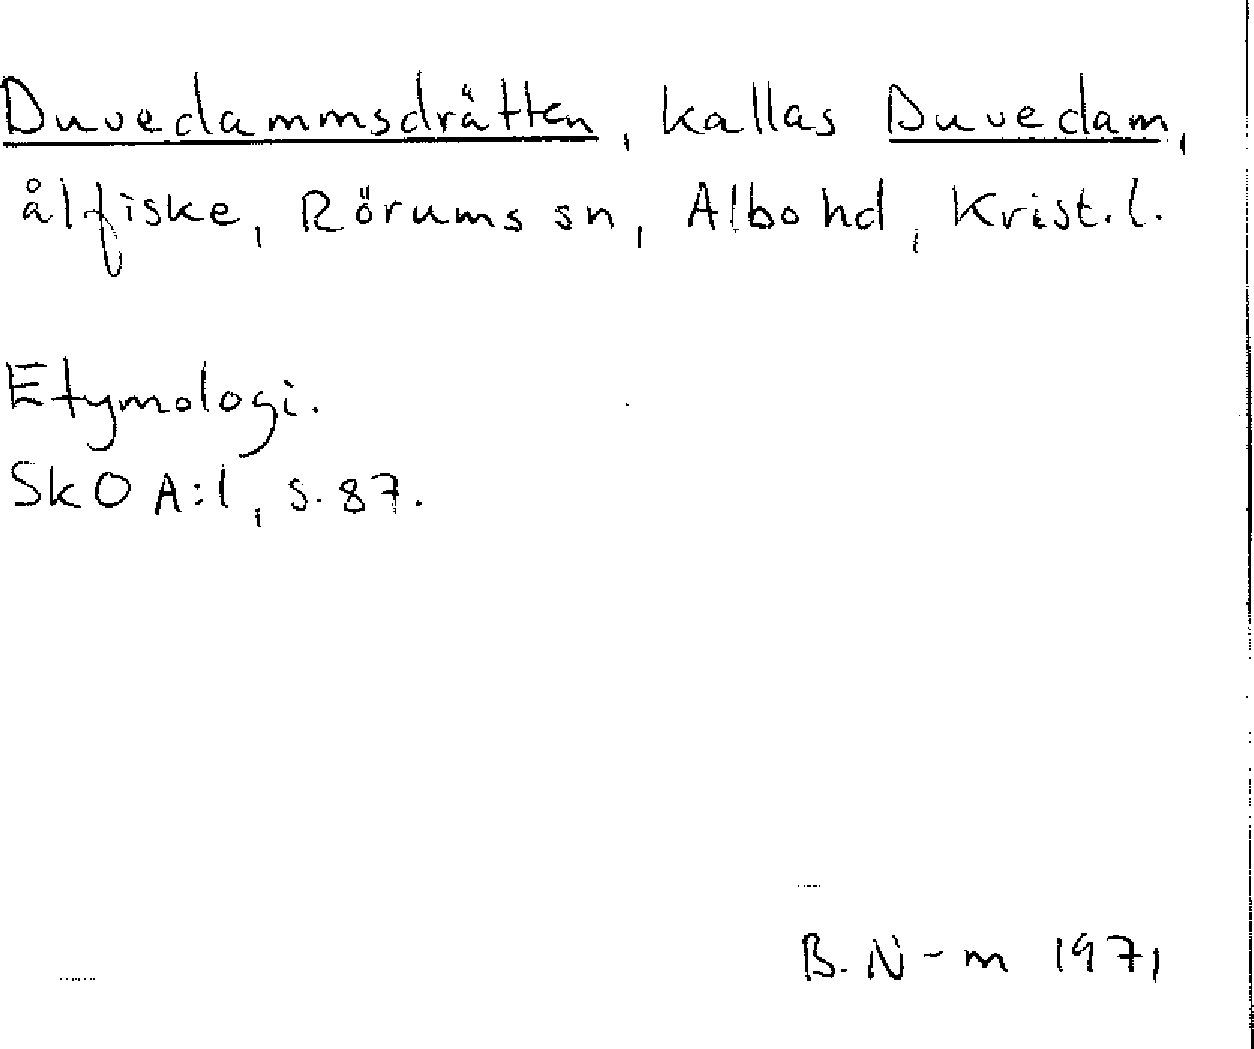 Duvedammsdrätten, kallas Duvedam,
ålfiske, Rörums sn, Albo hd, Krist.l.
Etymologi.
SkO A:1, s. 87.
B. N-m 1971